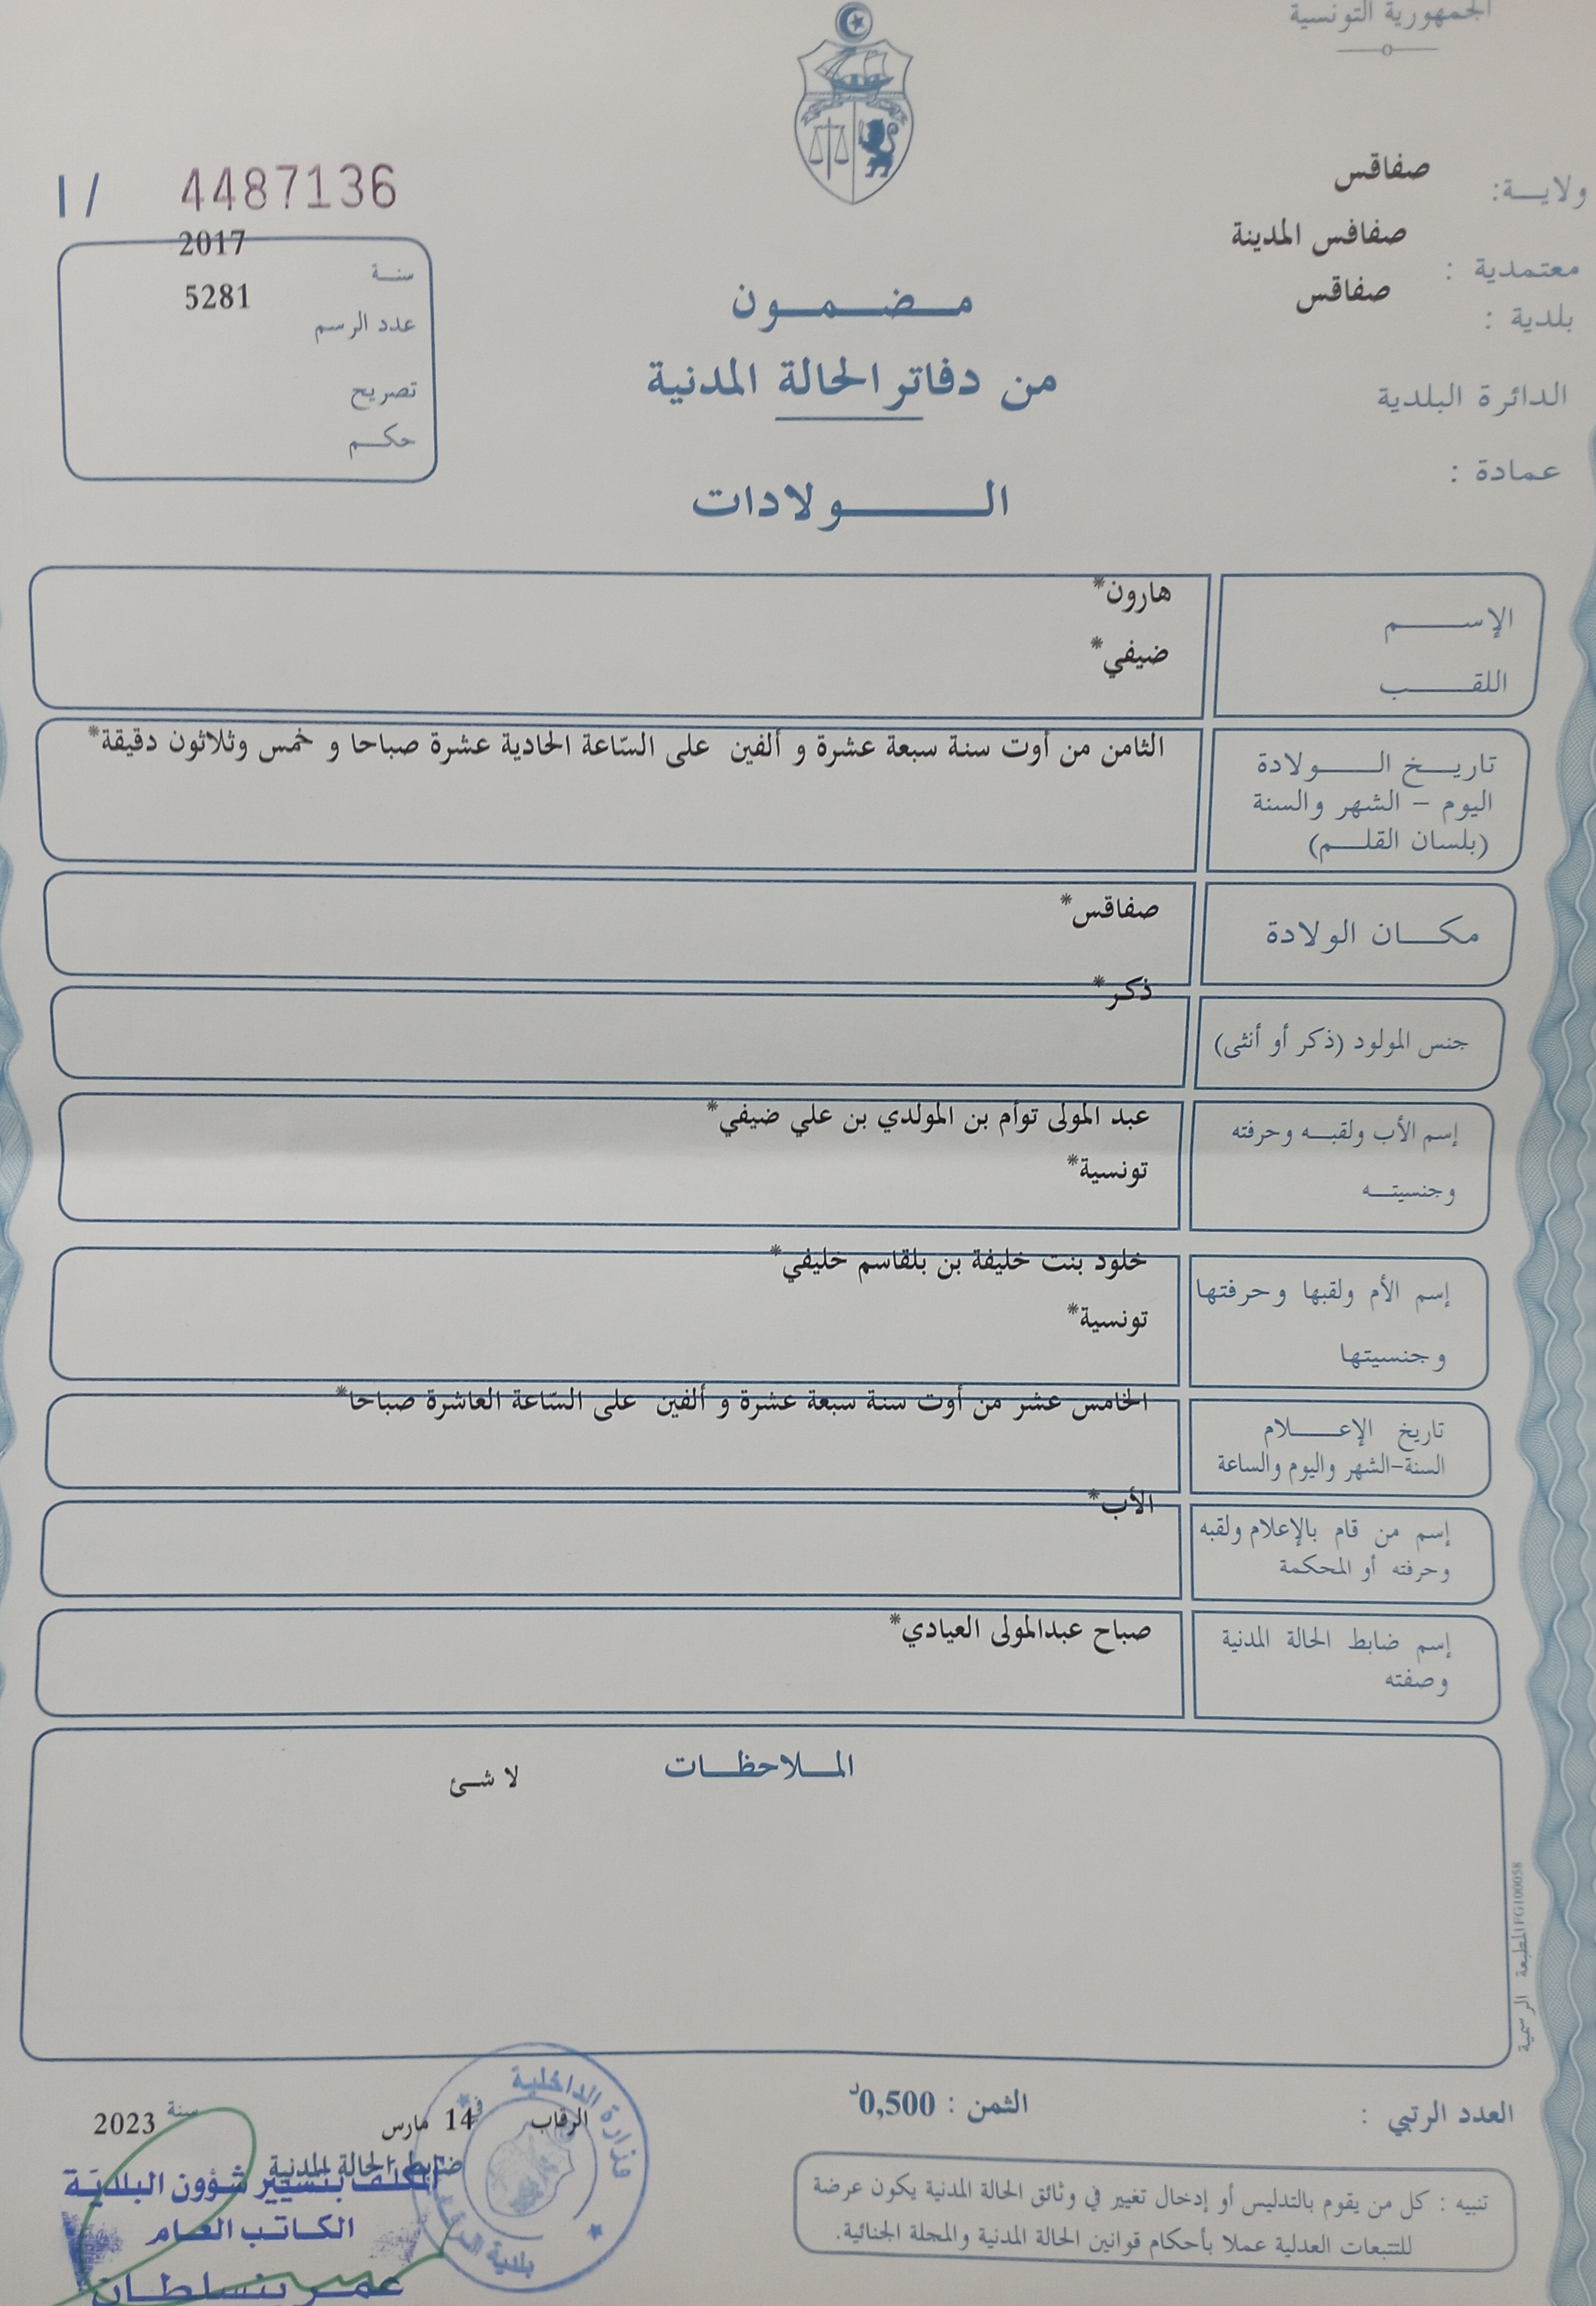 الجمهورية التونسية
ولايـــة: صفاقس
معتمدية : صفاقس المدينة
بلدية : صفاقس
الدائرة البلدية
عمادة :
I / 4487136
سنة 2017
عدد الرسم 5281
تصريح
حكم
مضمون
من دفاتر الحالة المدنية
الولادات
الإسم هارون*
اللقب ضيفي*
تاريخ الولادة الثامن من أوت سنة سبعة عشرة و ألفين على السّاعة الحادية عشرة صباحا و خمس وثلاثون دقيقة*
اليوم - الشهر والسنة
(بلسان القلم)
مكان الولادة صفاقس*
جنس المولود (ذكر أو أنثى) ذكر*
إسم الأب ولقبه وحرفته عبد المولى توأم بن المولدي بن علي ضيفي*
وجنسيته تونسية*
إسم الأم ولقبها وحرفتها خلود بنت خليفة بن بلقاسم خليفي*
وجنسيتها تونسية*
تاريخ الإعلام الخامس عشر من أوت سنة سبعة عشرة و ألفين على السّاعة العاشرة صباحا*
السنة-الشهر واليوم والساعة
إسم من قام بالإعلام ولقبه الأب*
وحرفته أو المحكمة
إسم ضابط الحالة المدنية صباح عبدالمولى العيادي*
وصفته
الملاحظات
لا شئ
المطبعة الرسمية FG100058
العدد الرتبي :
الثمن : 0,500د
الرقاب في 14 مارس سنة 2023
ضابط الحالة المدنية
المكلف بتسيير شؤون البلدية
الكاتب العام
عمر بنسلطان
وزارة الداخلية
بلدية الرقاب
تنبيه : كل من يقوم بالتدليس أو إدخال تغيير في وثائق الحالة المدنية يكون عرضة
للتتبعات العدلية عملا بأحكام قوانين الحالة المدنية والمجلة الجنائية.